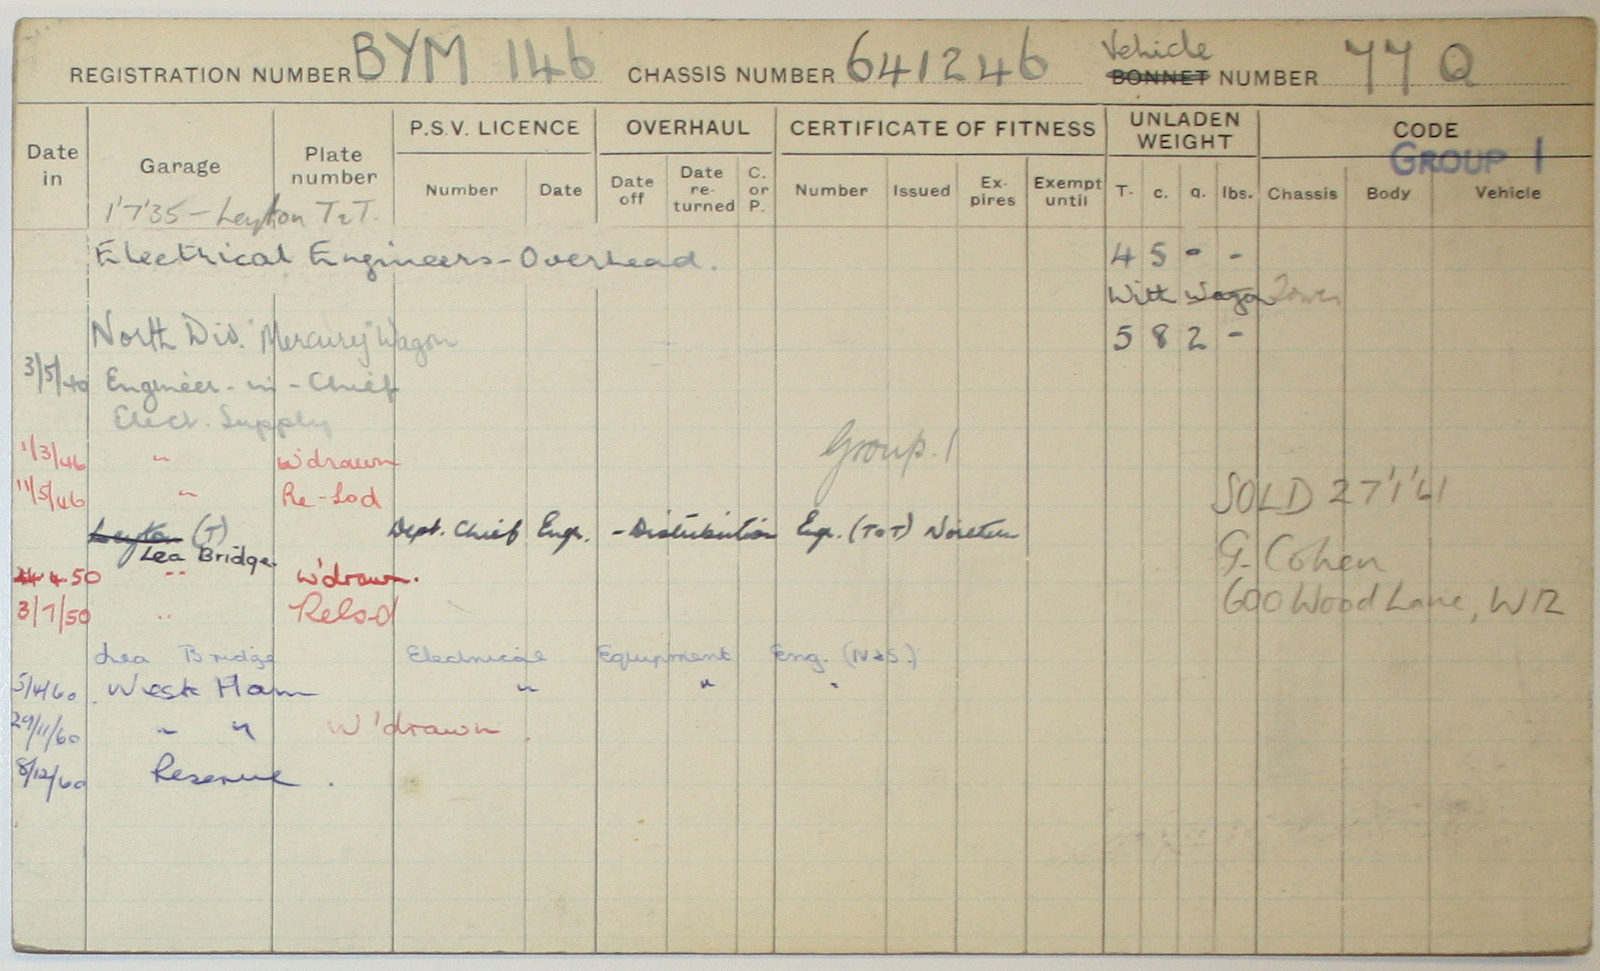 REGISTRATION NUMBER BYM 146 CHASSIS NUMBER 641246 Vehicle BONNET NUMBER 77 Q
Date in Garage Plate number P.S.V. LICENCE Number Date OVERHAUL Date off Date re-turned C. or P. CERTIFICATE OF FITNESS Number Issued Ex-pires Exempt until UNLADEN WEIGHT T. c. q. lbs. CODE GROUP 1 Chassis Body Vehicle
1'7'35 - Leyton T&T.
Electrical Engineers - Overhead. 4 5 - -
With Wagon Tower
North Div. "Mercury" Wagon 5 8 2 -
3/5/40 Engineer-in-Chief
Elect. Supply
Group. 1
1/3/46 " W'drawn
11/5/46 " Re-Lod
SOLD 27'1'61
Leyton (T) Dept. Chief Engr. - Distribution Engr. (T&T)
Lea Bridge
G. Cohen
4 50 " W'drawn.
3/7/50 " Relod
600 Wood Lane, W12
Lea Bridge Electrical Equipment Eng. (N&S.)
5/4/60 West Ham " " "
29/11/60 " " W'drawn.
8/12/60 Reserve.